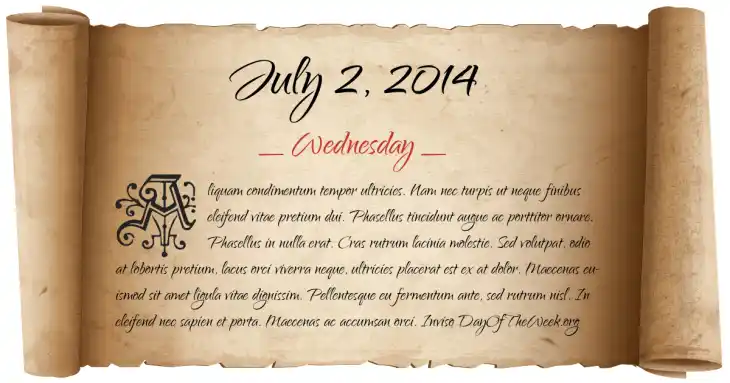 July 2, 2014
— Wednesday —
Aliquam condimentum tempor ultricies. Nam nec turpis ut neque finibus
eleifend vitae pretium dui. Phasellus tincidunt augue ac porttitor ornare.
Phasellus in nulla erat. Cras rutrum lacinia molestie. Sed volutpat, odio
at lobortis pretium, lacus orci viverra neque, ultricies placerat est ex at dolor. Maecenas eu-
ismod sit amet ligula vitae dignissim. Pellentesque eu fermentum ante, sed rutrum nisl. In
eleifend nec sapien et porta. Maecenas ac accumsan orci. Inviso DayOfTheWeek.org